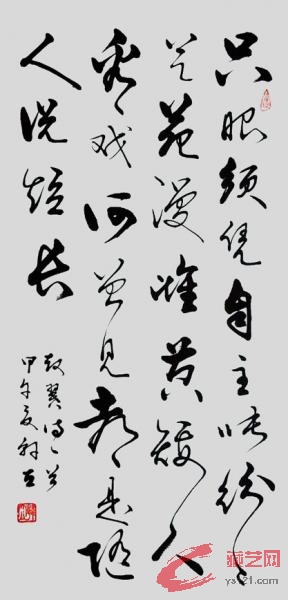 只眼须凭自主张纷纷
艺苑漫雌黄矮人
看戏何曾见都是随
人说短长
赵翼诗一首
甲午夏
藏艺网